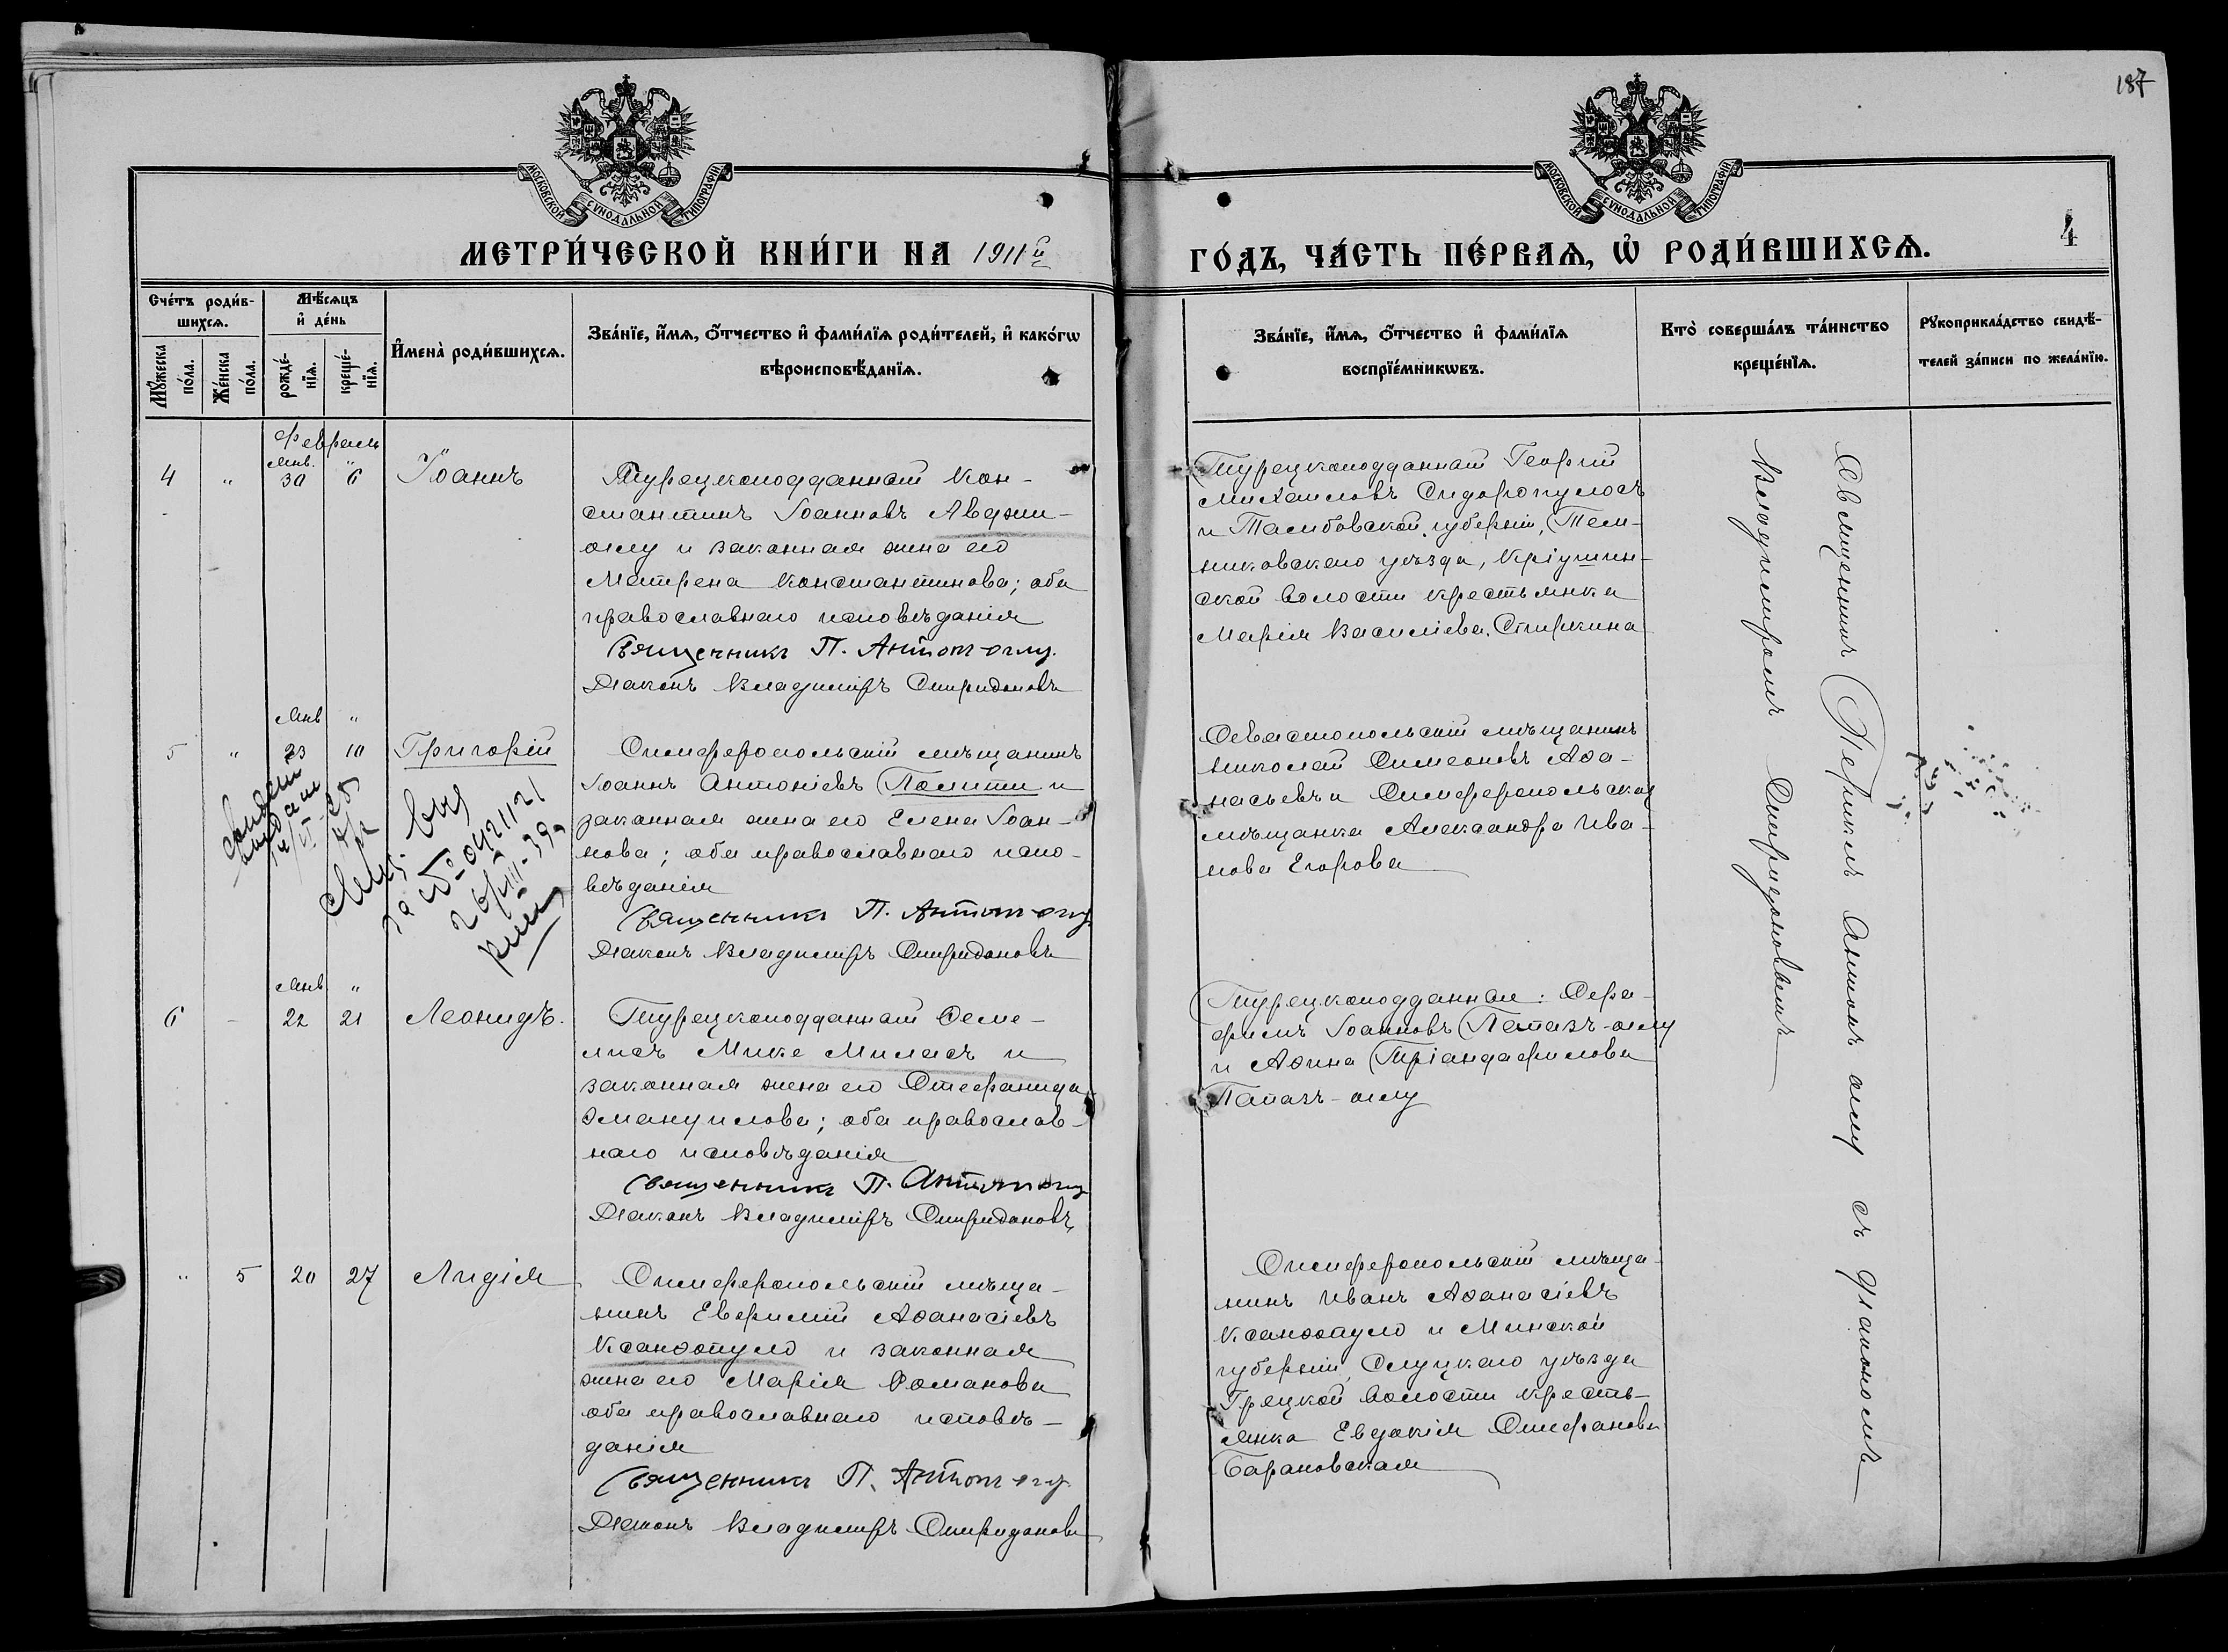 187
МОСКОВСКОЙ СѴНОДАЛЬНОЙ ТИПОГРАФІИ
МОСКОВСКОЙ СѴНОДАЛЬНОЙ ТИПОГРАФІИ
МЕТРИ́ЧЕСКОЙ КНИ́ГИ НА 1911й
ГО́ДЪ, ЧА́СТЬ ПЕ́РВАѦ, Ѡ҆ РОДИ́ВШИХСѦ.
4
Сче́тъ роди́в-
шихсѧ.
Мꙋ́жеска
по́ла.
Же́нска
по́ла.
Мѣ́сѧцъ
и҆ де́нь
рожде́-
нїѧ.
креще́-
нїѧ.
И҆мена̀ роди́вшихсѧ.
Зва́нїе, и҆́мѧ, ѻ҆́тчество и҆ фами́лїѧ роди́телей, и҆ како́гѡ
вѣроисповѣ́данїѧ.
Зва́нїе, и҆́мѧ, ѻ҆́тчество и҆ фами́лїѧ
воспрїе́мникѡвъ.
Кто̀ соверша́лъ та́инство
креще́нїѧ.
Рꙋкоприкла́дство свидѣ́-
телей за́писи по жела́нїю.
Февраль
Янв. "
4 " 30 6 Іоаннъ
Турецкоподданный Кон-
стантинъ Іоанновъ Авджи-
оглу и законная жена его
Матрена Константинова; оба
православнаго исповѣданія
Священникъ П. Антон-оглу.
Діаконъ Владиміръ Спиридоновъ
Турецкоподданный Георгій
Михаиловъ Сидоропулосъ
и Тамбовской губерніи, Тем-
никовскаго уѣзда, Кріушин-
ской волости крестьянка
Марія Василіева Спиркина
Янв "
5 " 23 10 Григорій
Симферопольскій мѣщанинъ
Іоаннъ Антоніевъ Полити и
законная жена его Елена Іоан-
нова; оба православнаго испо-
вѣданія
Священникъ П. Антон-оглу
Діаконъ Владиміръ Спиридоновъ
Севастопольскій мѣщанинъ
Николай Симеоновъ Аѳа-
насьевъ и Симферопольская
мѣщанка Александра Ива-
нова Егорова
выд
26/VIII-39
Янв "
6 - 22 21 Леонидъ.
Турецкоподданный Семе-
лисъ Мике Миласъ и
законная жена его Стефанида
Эмануилова; оба православ-
наго исповѣданія
Священникъ П. Антон оглу
Діаконъ Владиміръ Спиридоновъ
Турецкоподданные: Сера-
фимъ Іоанновъ Папазъ-оглу
и Аѳина Тріандафилова
Папазъ-оглу
" 5 20 27 Лидія
Симферопольскій мѣща-
нинъ Евфимій Аѳанасіевъ
Ксанѳопуло и законная
жена его Марія Романова
оба православнаго исповѣ-
данія
Священникъ П. Антон оглу
Діаконъ Владиміръ Спиридоновъ
Симферопольскій мѣща-
нинъ Иванъ Аѳанасіевъ
Ксанѳопуло и Минской
губерніи, Слуцкаго уѣзда
Грецкой волости кресть-
янка Евдокія Стефанова
Барановская
Священникъ Периклъ Антонъ оглу съ діакономъ
Владиміромъ Спиридоновымъ